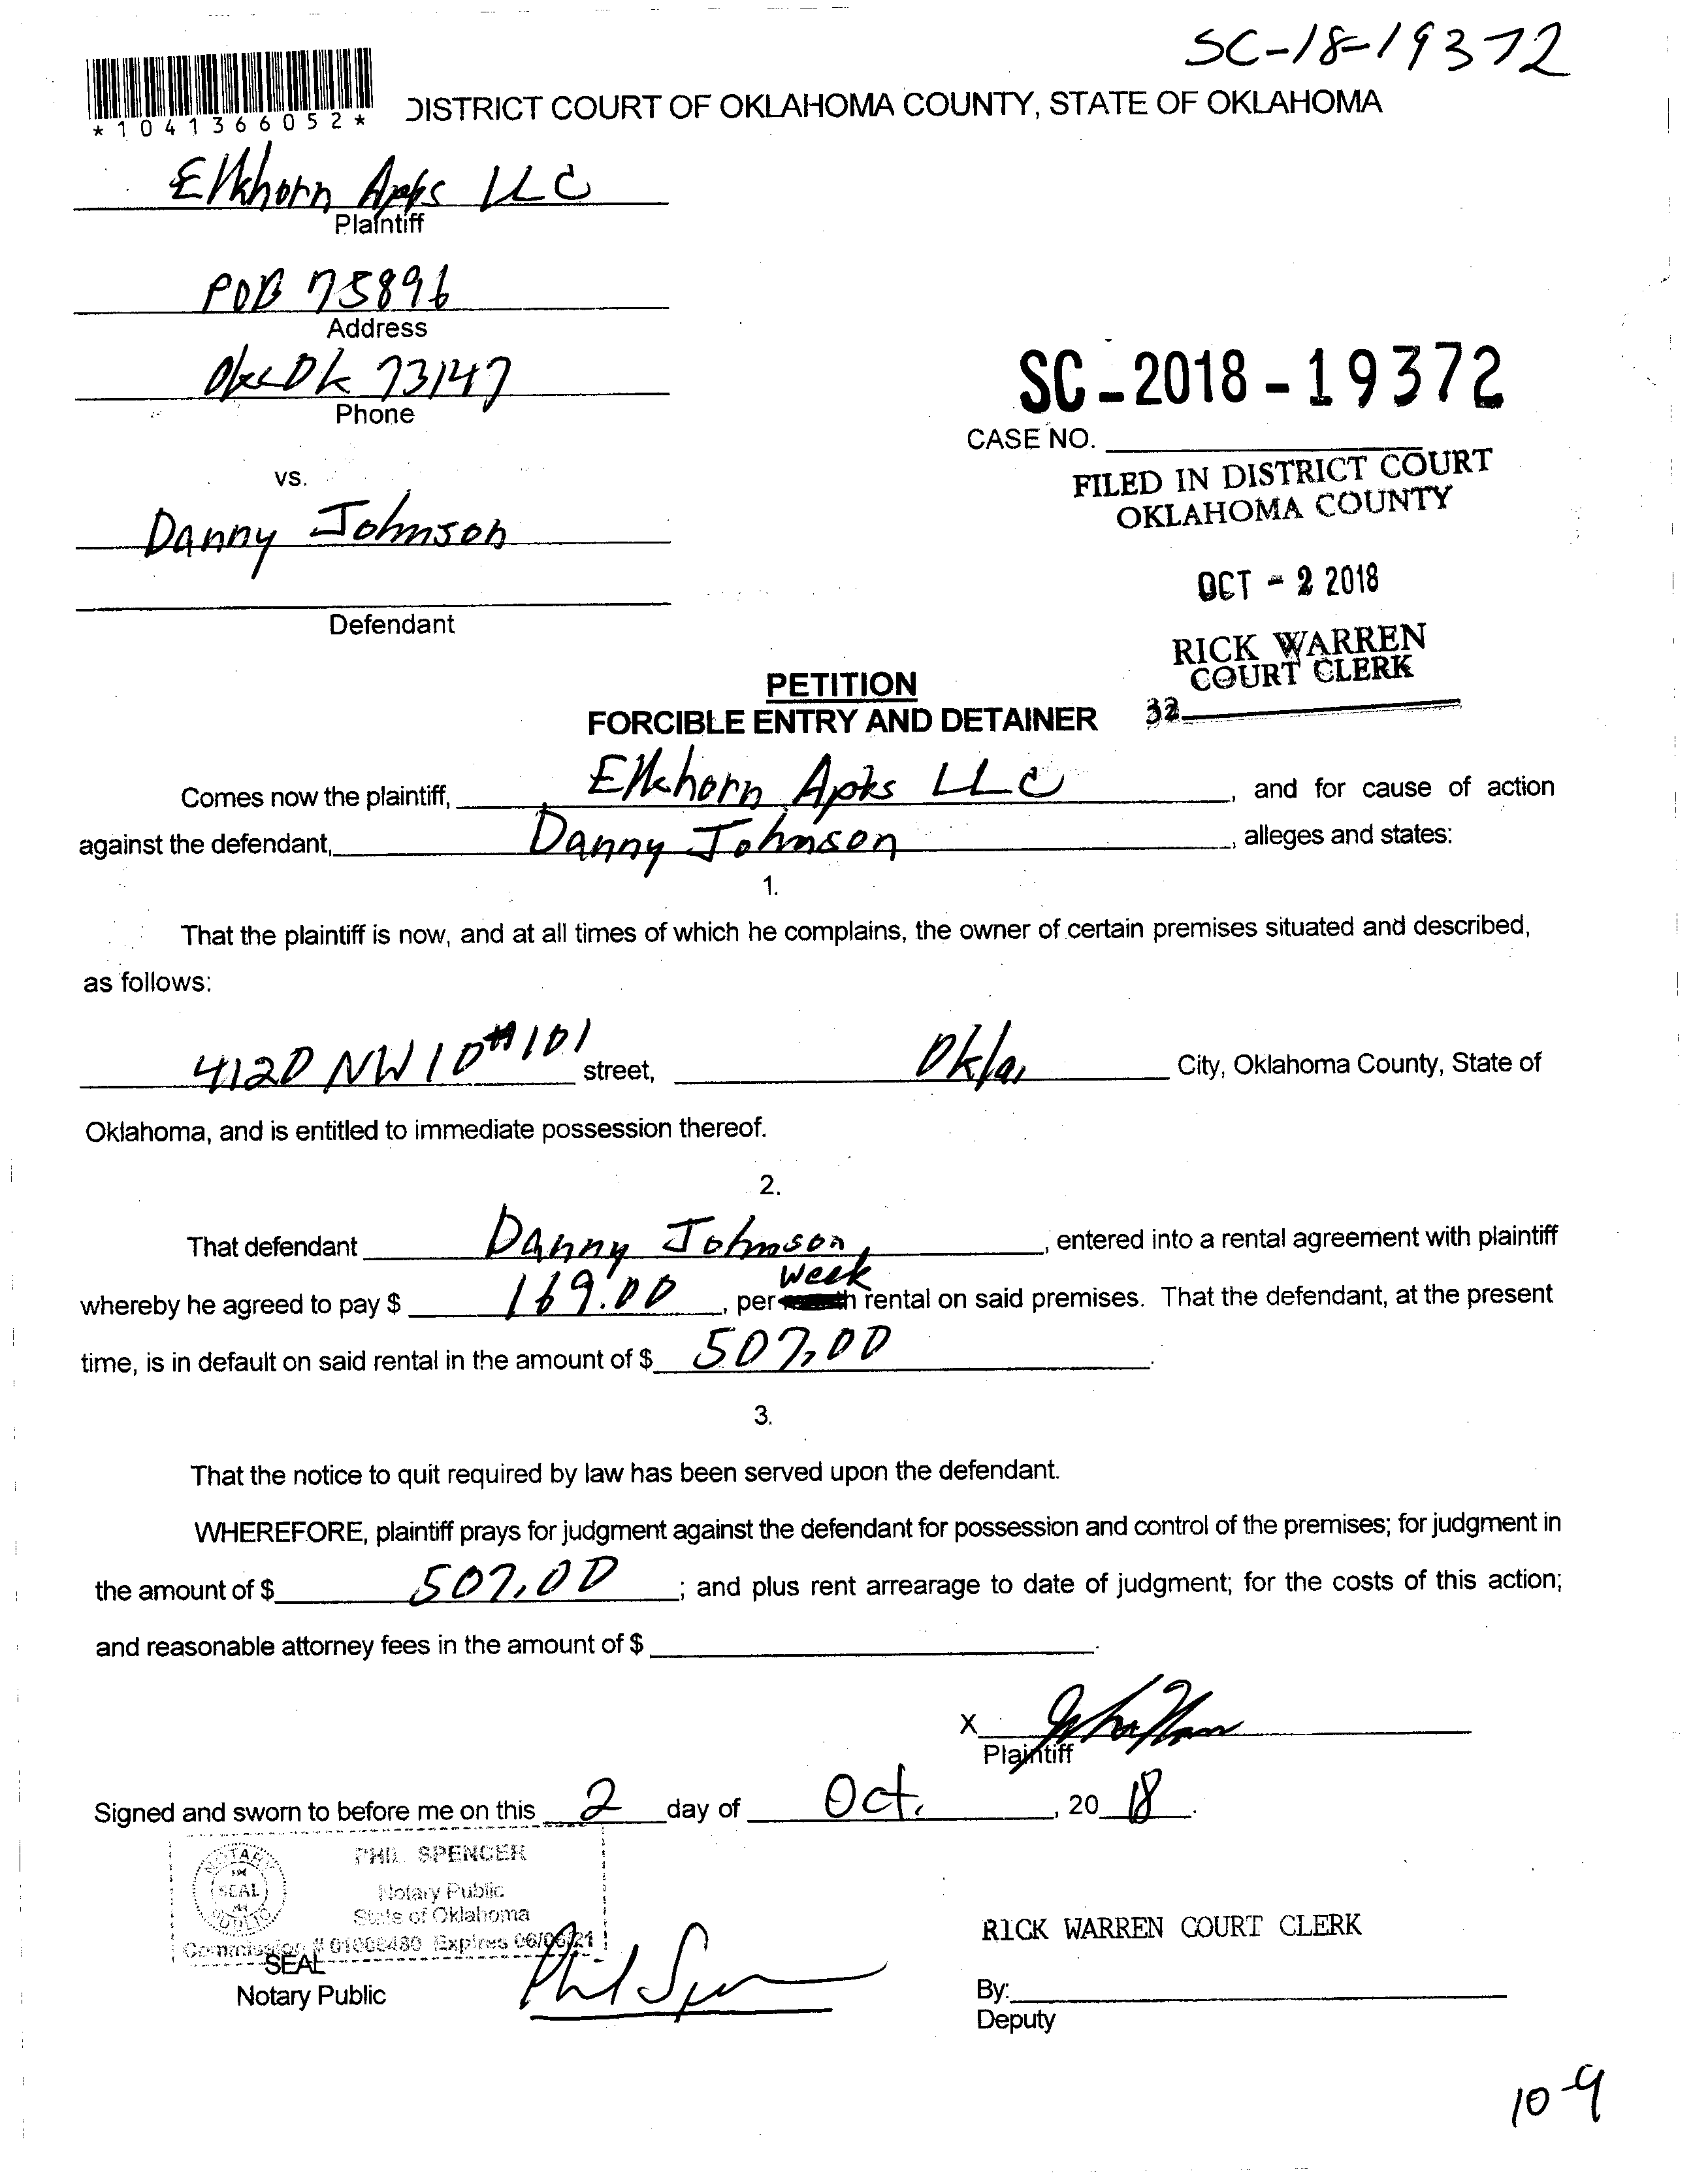 SC-18-19372
*1041366052*
DISTRICT COURT OF OKLAHOMA COUNTY, STATE OF OKLAHOMA
Elkhorn Apts LLC
Plaintiff
POB 75896
Address
Okc Ok 73147
Phone
SC-2018-19372
CASE NO.
FILED IN DISTRICT COURT
OKLAHOMA COUNTY
vs.
Danny Johnson
OCT - 2 2018
Defendant
RICK WARREN
COURT CLERK
32
PETITION
FORCIBLE ENTRY AND DETAINER
Comes now the plaintiff, Elkhorn Apts LLC, and for cause of action
against the defendant, Danny Johnson, alleges and states:
1.
That the plaintiff is now, and at all times of which he complains, the owner of certain premises situated and described,
as follows:
4120 NW 10 #101 street, Okla, City, Oklahoma County, State of
Oklahoma, and is entitled to immediate possession thereof.
2.
That defendant Danny Johnson, entered into a rental agreement with plaintiff
whereby he agreed to pay $ 169.00, per week rental on said premises. That the defendant, at the present
time, is in default on said rental in the amount of $ 507.00.
3.
That the notice to quit required by law has been served upon the defendant.
WHEREFORE, plaintiff prays for judgment against the defendant for possession and control of the premises; for judgment in
the amount of $ 507.00; and plus rent arrearage to date of judgment; for the costs of this action;
and reasonable attorney fees in the amount of $ .
X
Plaintiff
Signed and sworn to before me on this 2 day of Oct., 20 18.
PHIL SPENCER
NOTARY PUBLIC
SEAL
Notary Public
State of Oklahoma
Commission # 01006480 Expires 06/06/21
SEAL
Notary Public
Phil Spencer
RICK WARREN COURT CLERK
By:
Deputy
10-9